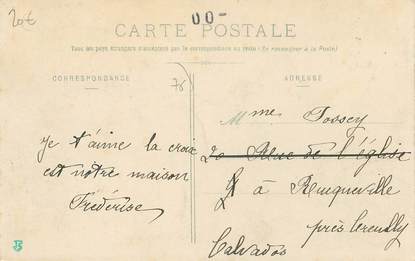 20€
00-
CARTE POSTALE
Tous les pays étrangers n'acceptent pas la correspondance au recto (Se renseigner à la Poste)
CORRESPONDANCE
ADRESSE
78
Mme Tossey
20 Rue de l'église
à Rucqueville
près Creully
Calvados
Je t'aime la croix
est notre maison